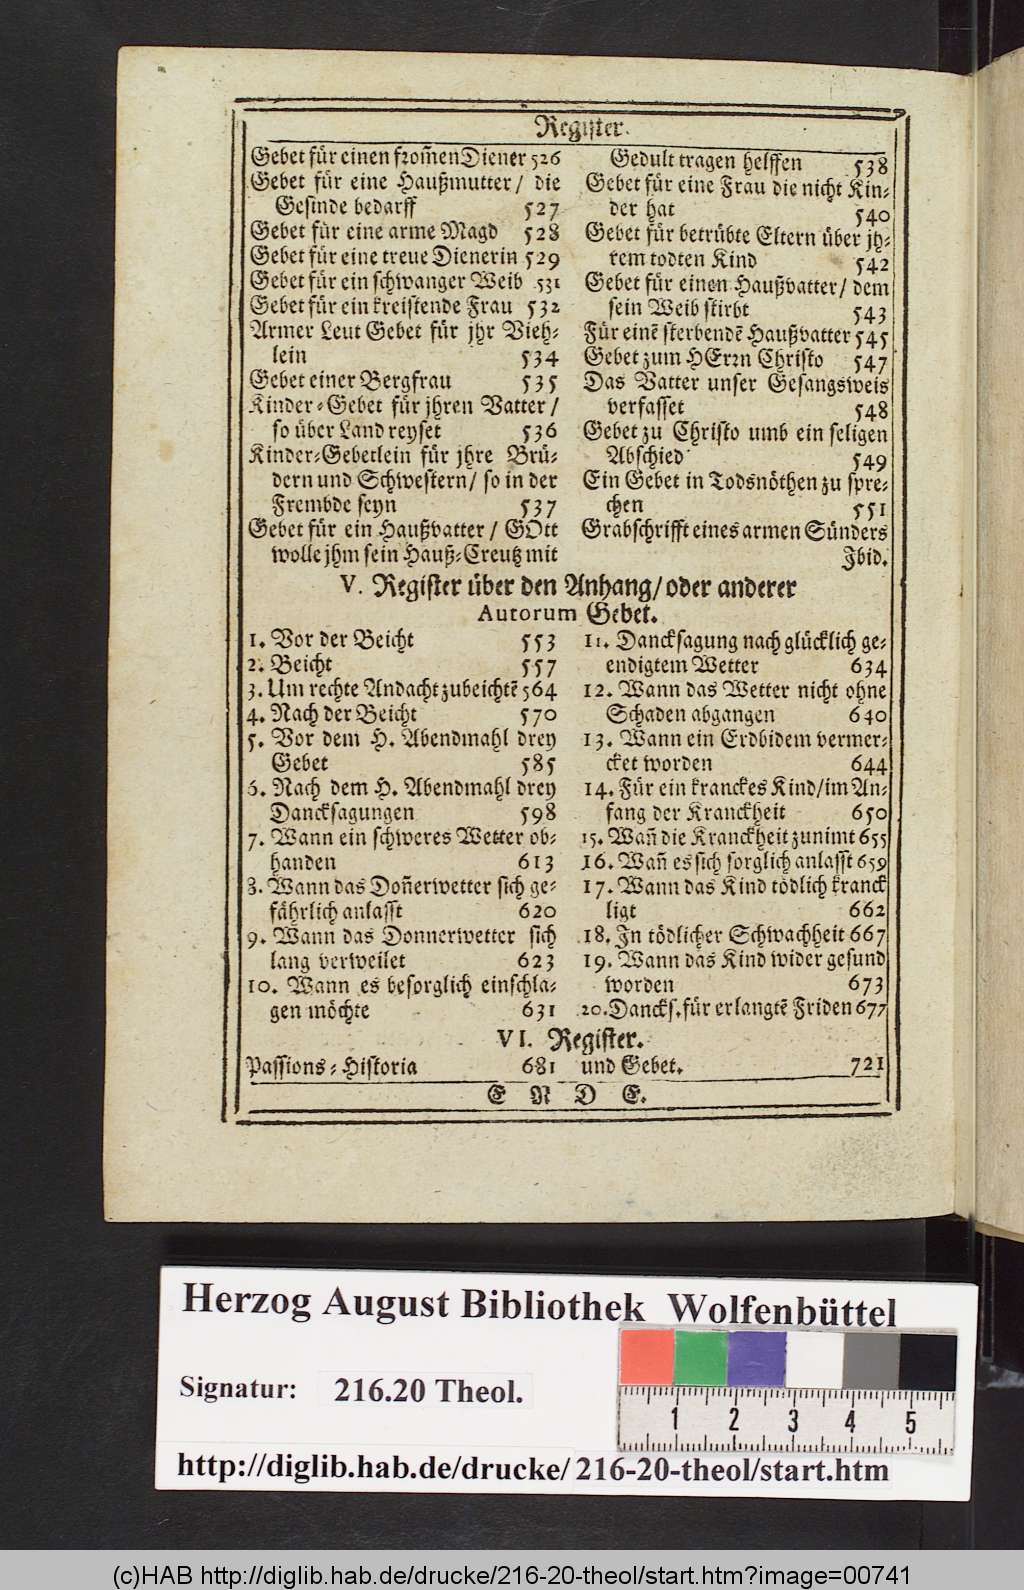 Register.
Gebet für einen from̃en Diener 526
Gebet für eine Haußmutter / die
Gesinde bedarff 527
Gebet für eine arme Magd 528
Gebet für eine treue Dienerin 529
Gebet für ein schwanger Weib 531
Gebet für ein kreistende Frau 532
Armer Leut Gebet für jhr Vieh-
lein 534
Gebet einer Bergfrau 535
Kinder-Gebet für jhren Vatter /
so über Land reyset 536
Kinder-Gebetlein für jhre Brü-
dern und Schwestern / so in der
Frembde seyn 537
Gebet für ein Haußvatter / GOtt
wolle jhm sein Hauß-Creutz mit
Gedult tragen helffen 538
Gebet für eine Frau die nicht Kin-
der hat 540
Gebet für betrübte Eltern über jh-
rem todten Kind 542
Gebet für einen Haußvatter / dem
sein Weib stirbt 543
Für einẽ sterbendẽ Haußvatter 545
Gebet zum HErrn Christo 547
Das Vatter unser Gesangsweis
verfasset 548
Gebet zu Christo umb ein seligen
Abschied 549
Ein Gebet in Todsnöthen zu spre-
chen 551
Grabschrifft eines armen Sünders
Ibid.
V. Register über den Anhang / oder anderer
Autorum Gebet.
1. Vor der Beicht 553
2. Beicht 557
3. Um rechte Andacht zubeichtẽ 564
4. Nach der Beicht 570
5. Vor dem H. Abendmahl drey
Gebet 585
6. Nach dem H. Abendmahl drey
Dancksagungen 598
7. Wann ein schweres Wetter ob-
handen 613
8. Wann das Don̄erwetter sich ge-
fährlich anlasst 620
9. Wann das Donnerwetter sich
lang verweilet 623
10. Wann es besorglich einschla-
gen möchte 631
11. Dancksagung nach glücklich ge-
endigtem Wetter 634
12. Wann das Wetter nicht ohne
Schaden abgangen 640
13. Wann ein Erdbidem vermer-
cket worden 644
14. Für ein kranckes Kind / im An-
fang der Kranckheit 650
15. Wan̄ die Kranckheit zunimt 655
16. Wan̄ es sich sorglich anlasst 659
17. Wann das Kind tödlich kranck
ligt 662
18. In tödlicher Schwachheit 667
19. Wann das Kind wider gesund
worden 673
20. Dancks. für erlangtẽ Friden 677
VI. Register.
Passions-Historia 681 und Gebet. 721
E N D E.
Herzog August Bibliothek Wolfenbüttel
Signatur: 216.20 Theol.
1 2 3 4 5
http://diglib.hab.de/drucke/216-20-theol/start.htm
(c)HAB http://diglib.hab.de/drucke/216-20-theol/start.htm?image=00741